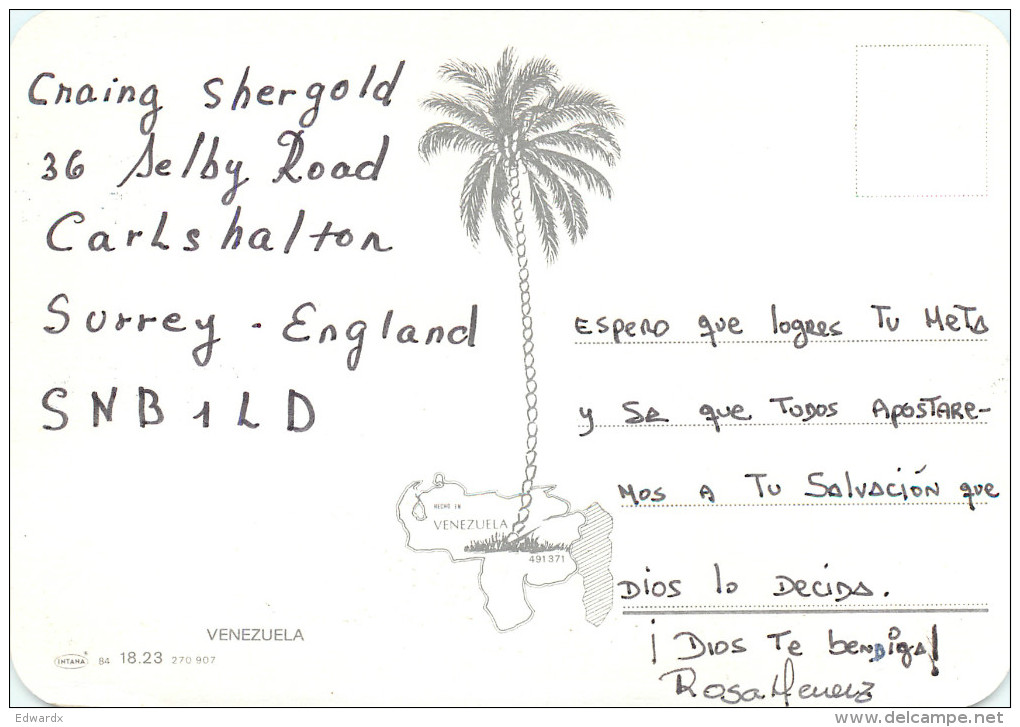 Cnaing Shergold
36 Selby Road
Carlshalton
Surrey - England
SNB 1LD
ESPERO que logres TU META
y SE que TODOS APOSTARE-
MOS A TU SALVACIÓN que
DIOS lo DECIDA.
¡DIOS TE bENDIGA!
Rosa
HECHO EN
VENEZUELA
491371
VENEZUELA
INTANA 84 18.23 270 907
Edwardx
www.delcampe.net